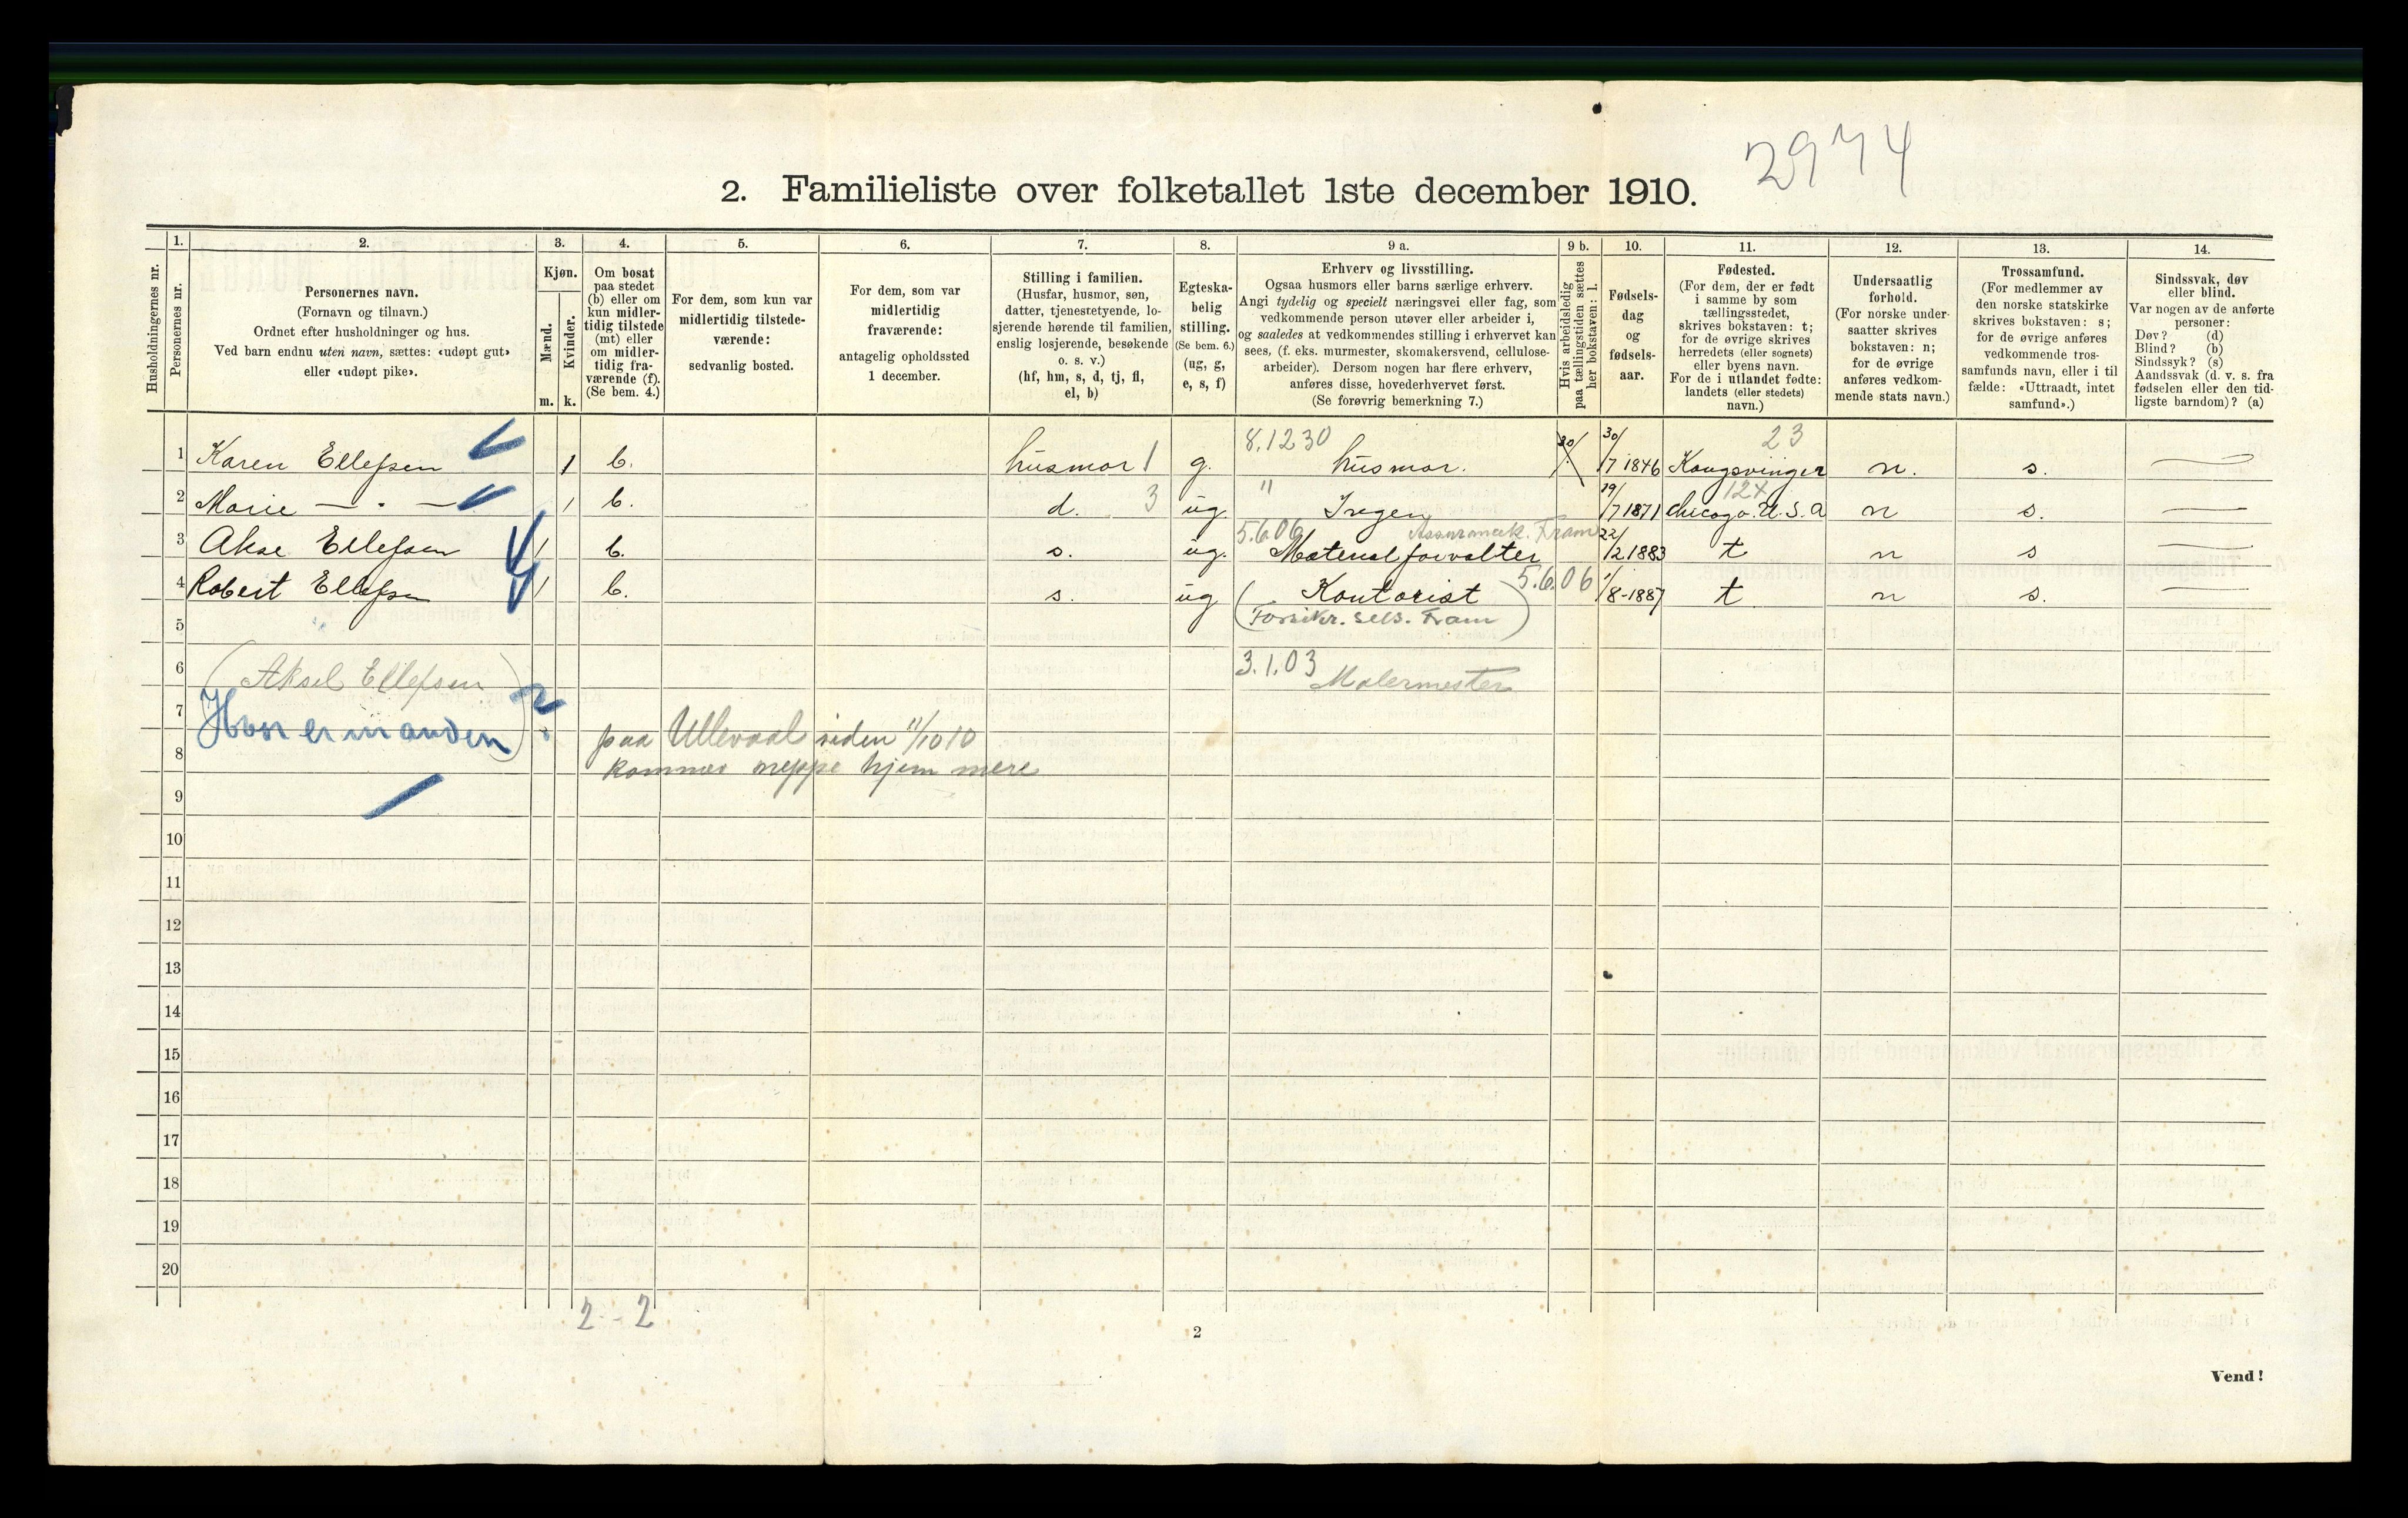 2974
2. Familieliste over folketallet 1ste december 1910.
1. 2. 3. 4. 5. 6. 7. 8. 9 a. 9 b. 10. 11. 12. 13. 14.
Husholdningernes nr.
Personernes nr.
Personernes navn.
(Fornavn og tilnavn.)
Ordnet efter husholdninger og hus.
Ved barn endnu uten navn, sættes: «udøpt gut»
eller «udøpt pike».
Kjøn.
Mænd.
Kvinder.
m. k.
Om bosat
paa stedet
(b) eller om
kun midler-
tidig tilstede
(mt) eller
om midler-
tidig fra-
værende (f).
(Se bem. 4.)
For dem, som kun var
midlertidig tilstede-
værende:
sedvanlig bosted.
For dem, som var
midlertidig
fraværende:
antagelig opholdssted
1 december.
Stilling i familien.
(Husfar, husmor, søn,
datter, tjenestetyende, lo-
sjerende hørende til familien,
enslig losjerende, besøkende
o. s. v.)
(hf, hm, s, d, tj, fl,
el, b)
Egteska-
belig
stilling.
(Se bem. 6.)
(ug, g,
e, s, f)
Erhverv og livsstilling.
Ogsaa husmors eller barns særlige erhverv.
Angi tydelig og specielt næringsvei eller fag, som
vedkommende person utøver eller arbeider i,
og saaledes at vedkommendes stilling i erhvervet kan
sees, (f. eks. murmester, skomakersvend, cellulose-
arbeider). Dersom nogen har flere erhverv,
anføres disse, hovederhvervet først.
(Se forøvrig bemerkning 7.)
Hvis arbeidsledig
paa tællingstiden sættes
her bokstaven: l.
Fødsels-
dag
og
fødsels-
aar.
Fødested.
(For dem, der er født
i samme by som
tællingsstedet,
skrives bokstaven: t;
for de øvrige skrives
herredets (eller sognets)
eller byens navn.
For de i utlandet fødte:
landets (eller stedets)
navn.)
Undersaatlig
forhold.
(For norske under-
saatter skrives
bokstaven: n;
for de øvrige
anføres vedkom-
mende stats navn.)
Trossamfund.
(For medlemmer av
den norske statskirke
skrives bokstaven: s;
for de øvrige anføres
vedkommende tros-
samfunds navn, eller i til
fælde: «Uttraadt, intet
samfund».)
Sindssvak, døv
eller blind.
Var nogen av de anførte
personer:
Døv? (d)
Blind? (b)
Sindssyk? (s)
Aandssvak (d. v. s. fra
fødselen eller den tid-
ligste barndom)? (a)
8.1230 23
1 Karen Ellefsen 1 b. husmor 1 g. husmor. 30/7 1846 Kongsvinger n. s.
" 12x
2 Marie — " — 1 b. d. 3 ug. Ingen 19/7 1871 Chicago. U.S.A n s.
5.6.06 Assuransek. Fram
3 Akse Ellefsen 1 b. s. ug. Materialforvalter 22/2 1883 t n s
4 Robert Ellefsen 1 b. s. ug (Kontorist) 5.6.06 1/8-1887 t n s.
5 Forsikr. sels. Fram
6 (Aksel Ellefsen) 3.1.03 Malermester
7 Hvor er manden?
8 paa Ullevaal siden 11/10 10
kommer neppe hjem mere
9
10
11
12
13
14
15
16
17
18
19
20
2 - 2
2
Vend!